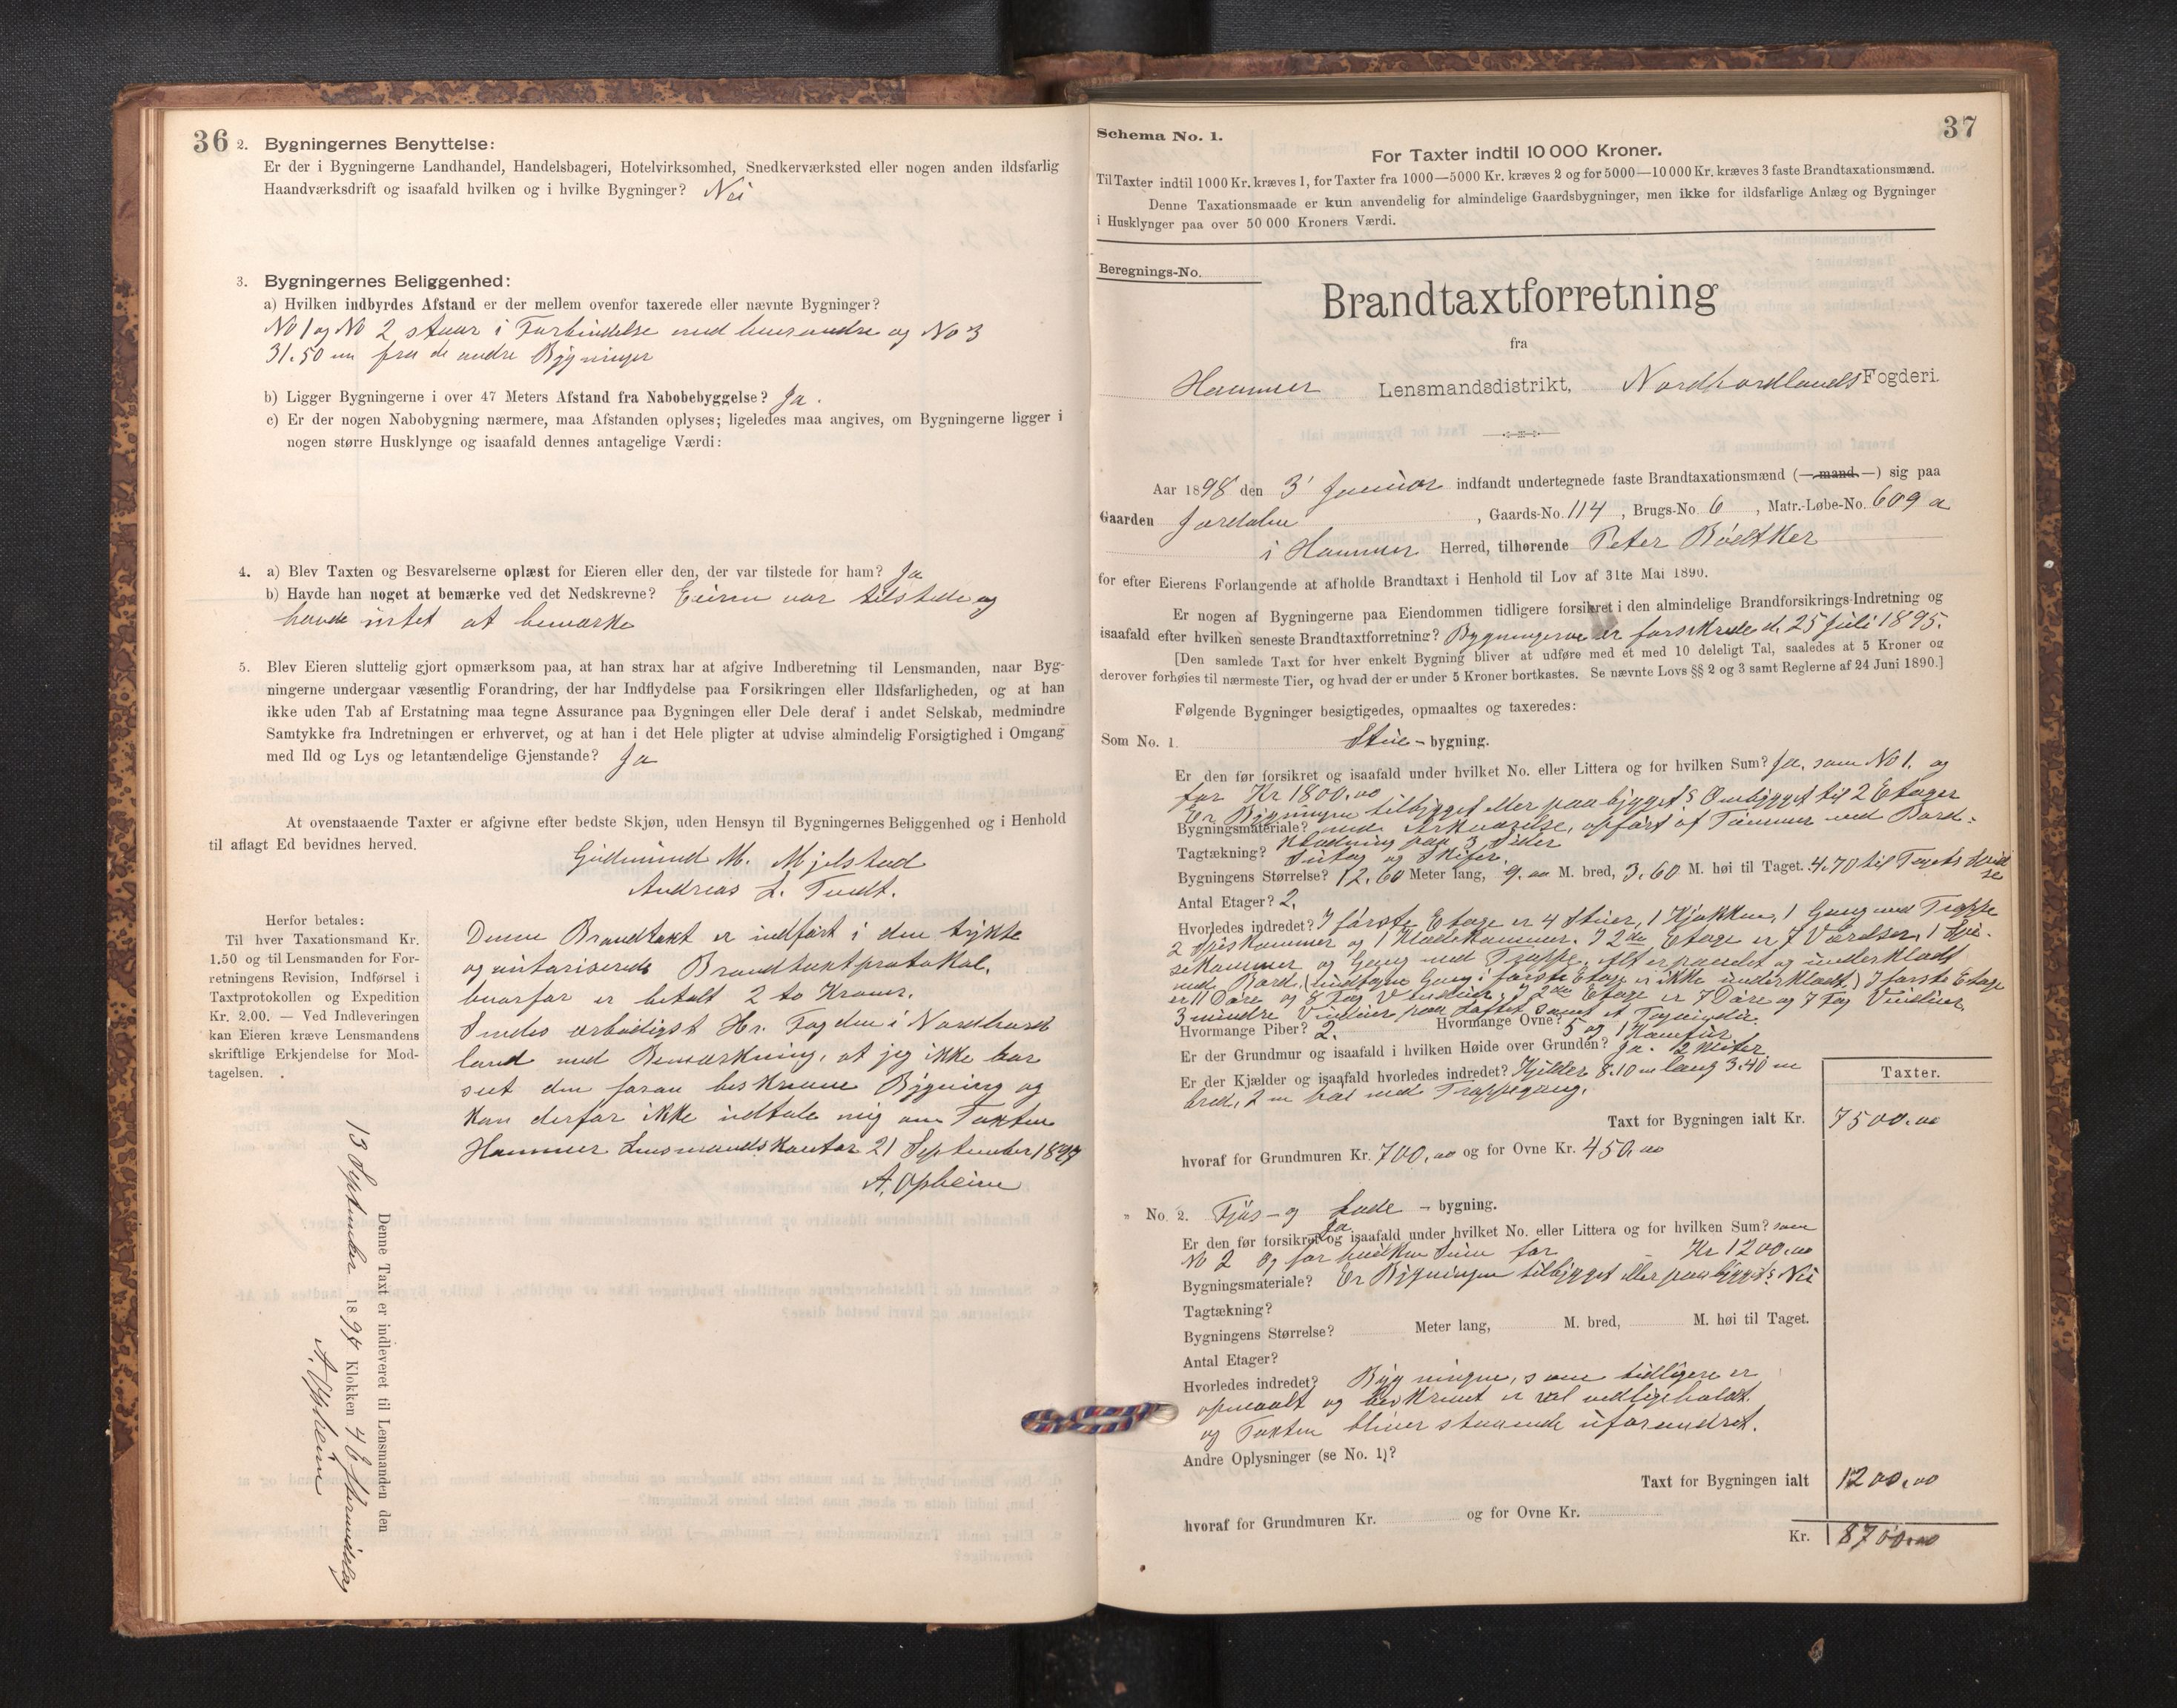 36
2. Bygningernes Benyttelse:
Er der i Bygningerne Landhandel, Handelsbageri, Hotelvirksomhed, Snedkerværksted eller nogen anden ildsfarlig
Haandværksdrift og isaafald hvilken og i hvilke Bygninger? Nei
3. Bygningernes Beliggenhed:
a) Hvilken indbyrdes Afstand er der mellem ovenfor taxerede eller nævnte Bygninger?
No 1 og No 2 staar i Forbindelse med hverandre og No 3
31.50 m fra de andre Bygninger
b) Ligger Bygningerne i over 47 Meters Afstand fra Nabobebyggelse? Ja.
c) Er der nogen Nabobygning nærmere, maa Afstanden oplyses; ligeledes maa angives, om Bygningerne ligger i
nogen større Husklynge og isaafald dennes antagelige Værdi:
4. a) Blev Taxten og Besvarelserne oplæst for Eieren eller den, der var tilstede for ham? Ja
b) Havde han noget at bemærke ved det Nedskrevne? Eieren var tilstede og
havde intet at bemærke
5. Blev Eieren sluttelig gjort opmærksom paa, at han strax har at afgive Indberetning til Lensmanden, naar Byg-
ningerne undergaar væsentlig Forandring, der har Indflydelse paa Forsikringen eller Ildsfarligheden, og at han
ikke uden Tab af Erstatning maa tegne Assurance paa Bygningen eller Dele deraf i andet Selskab, medmindre
Samtykke fra Indretningen er erhvervet, og at han i det Hele pligter at udvise almindelig Forsigtighed i Omgang
med Ild og Lys og letantændelige Gjenstande? Ja
At ovenstaaende Taxter er afgivne efter bedste Skjøn, uden Hensyn til Bygningernes Beliggenhed og i Henhold
til aflagt Ed bevidnes herved.
Gudmund M. Mjelstad
Andreas L. Tvedt.
Herfor betales:
Til hver Taxationsmand Kr.
1.50 og til Lensmanden for For-
retningens Revision, Indførsel i
Taxtprotokollen og Expedition
Kr. 2.00. — Ved Indleveringen
kan Eieren kræve Lensmandens
skriftlige Erkjendelse for Mod-
tagelsen.
Denne Brandtakst er indført i den trykte
og autoriserede Brandtaxtprotokol,
hvorfor er betalt 2 to Kroner.
Sendes ærbødigst Hr. Fogden i Nordhord
land med Bemærkning, at jeg ikke har
seet den foran beskrevne Bygning og
kan derfor ikke udtale mig om Taxten
Hammer Lensmandskontor 21 September 1897
A. Opheim
Denne Taxt er indleveret til Lensmanden den
13 September 1897 Klokken 4 Eftermiddag
A. Opheim
37
Schema No. 1.
For Taxter indtil 10 000 Kroner.
Til Taxter indtil 1000 Kr. kræves 1, for Taxter fra 1000—5000 Kr. kræves 2 og for 5000—10 000 Kr. kræves 3 faste Brandtaxationsmænd.
Denne Taxationsmaade er kun anvendelig for almindelige Gaardsbygninger, men ikke for ildsfarlige Anlæg og Bygninger
i Husklynger paa over 50 000 Kroners Værdi.
Beregnings-No.
Brandtaxtforretning
fra
Hammer Lensmandsdistrikt, Nordhordlands Fogderi.
Aar 1898 den 3' Januar indfandt undertegnede faste Brandtaxationsmænd (—mand—) sig paa
Gaarden Jordalen, Gaards-No. 114, Brugs-No. 6, Matr.-Løbe-No. 609 a
i Hammer Herred, tilhørende Peter Bødtker
for efter Eierens Forlangende at afholde Brandtaxt i Henhold til Lov af 31te Mai 1890.
Er nogen af Bygningerne paa Eiendommen tidligere forsikret i den almindelige Brandforsikrings-Indretning og
isaafald efter hvilken seneste Brandtaxtforretning? Bygningerne er forsikrede d. 25 Juli 1895.
[Den samlede Taxt for hver enkelt Bygning bliver at udføre med et med 10 deleligt Tal, saaledes at 5 Kroner og
derover forhøies til nærmeste Tier, og hvad der er under 5 Kroner bortkastes. Se nævnte Lovs §§ 2 og 3 samt Reglerne af 24 Juni 1890.]
Følgende Bygninger besigtigedes, opmaaltes og taxeredes:
Som No. 1. Stue-bygning.
Er den før forsikret og isaafald under hvilket No. eller Littera og for hvilken Sum? Ja, som No 1. og
for Kr 1800.00
Er Bygningen tilbygget eller paabygget? Ombygget til 2 Etager
Bygningsmateriale? med Arkværelse, opført af Tømmer med Bord-
Klædning paa 3 Sider
Tagtækning? Sutag og Skifer.
Bygningens Størrelse? 12.60 Meter lang, 9.00 M. bred, 3.60 M. høi til Taget. 4.70 til Tagets Høide
Antal Etager? 2.
Hvorledes indredet? I første Etage er 4 Stuer, 1 Kjøkken, 1 Gang med Trappe
2 Spiskammer og 1 Klædekammer. I 2den Etage er 7 Værelser, 1 Spi-
sekammer og Gang med Trappe. Alt er panelet og underklædt
med Bord, (undtagen Gang i første Etage er ikke underklædt.) I første Etage
er 11 Døre og 8 Fag Vinduer, I 2den Etage er 7 Døre og 7 Fag Vinduer,
3 mindre Vinduer paa Loftet samt et Tagvindu.
Hvormange Piber? 2. Hvormange Ovne? 5 og 1 Komfur.
Er der Grundmur og isaafald i hvilken Høide over Grunden? Ja. 2 Meter
Er der Kjælder og isaafald hvorledes indredet? Kjelder 8.10 m lang 3.40 m
bred, 2 m høi med Trappegang.
Taxter.
Taxt for Bygningen ialt Kr. 7500.00
hvoraf for Grundmuren Kr. 700,00 og for Ovne Kr. 450,00
" No. 2. Fjøs- og Lade-bygning.
Ja
Er den før forsikret og isaafald under hvilket No. eller Littera og for hvilken Sum? som
No 2 og for hvilken Sum for Kr 1200.00
Bygningsmateriale? Er Bygningen tilbygget eller paabygget? Nei
Tagtækning?
Bygningens Størrelse? Meter lang, M. bred, M. høi til Taget.
Antal Etager?
Hvorledes indredet? Bygningen, som tidligere er
opmaalt og beskrevet er vel vedligeholdt.
og Taxten bliver staaende uforandret.
Andre Oplysninger (se No. 1)?
Taxt for Bygningen ialt 1200.00
hvoraf for Grundmuren Kr. og for Ovne Kr.
Kr. 8700.00